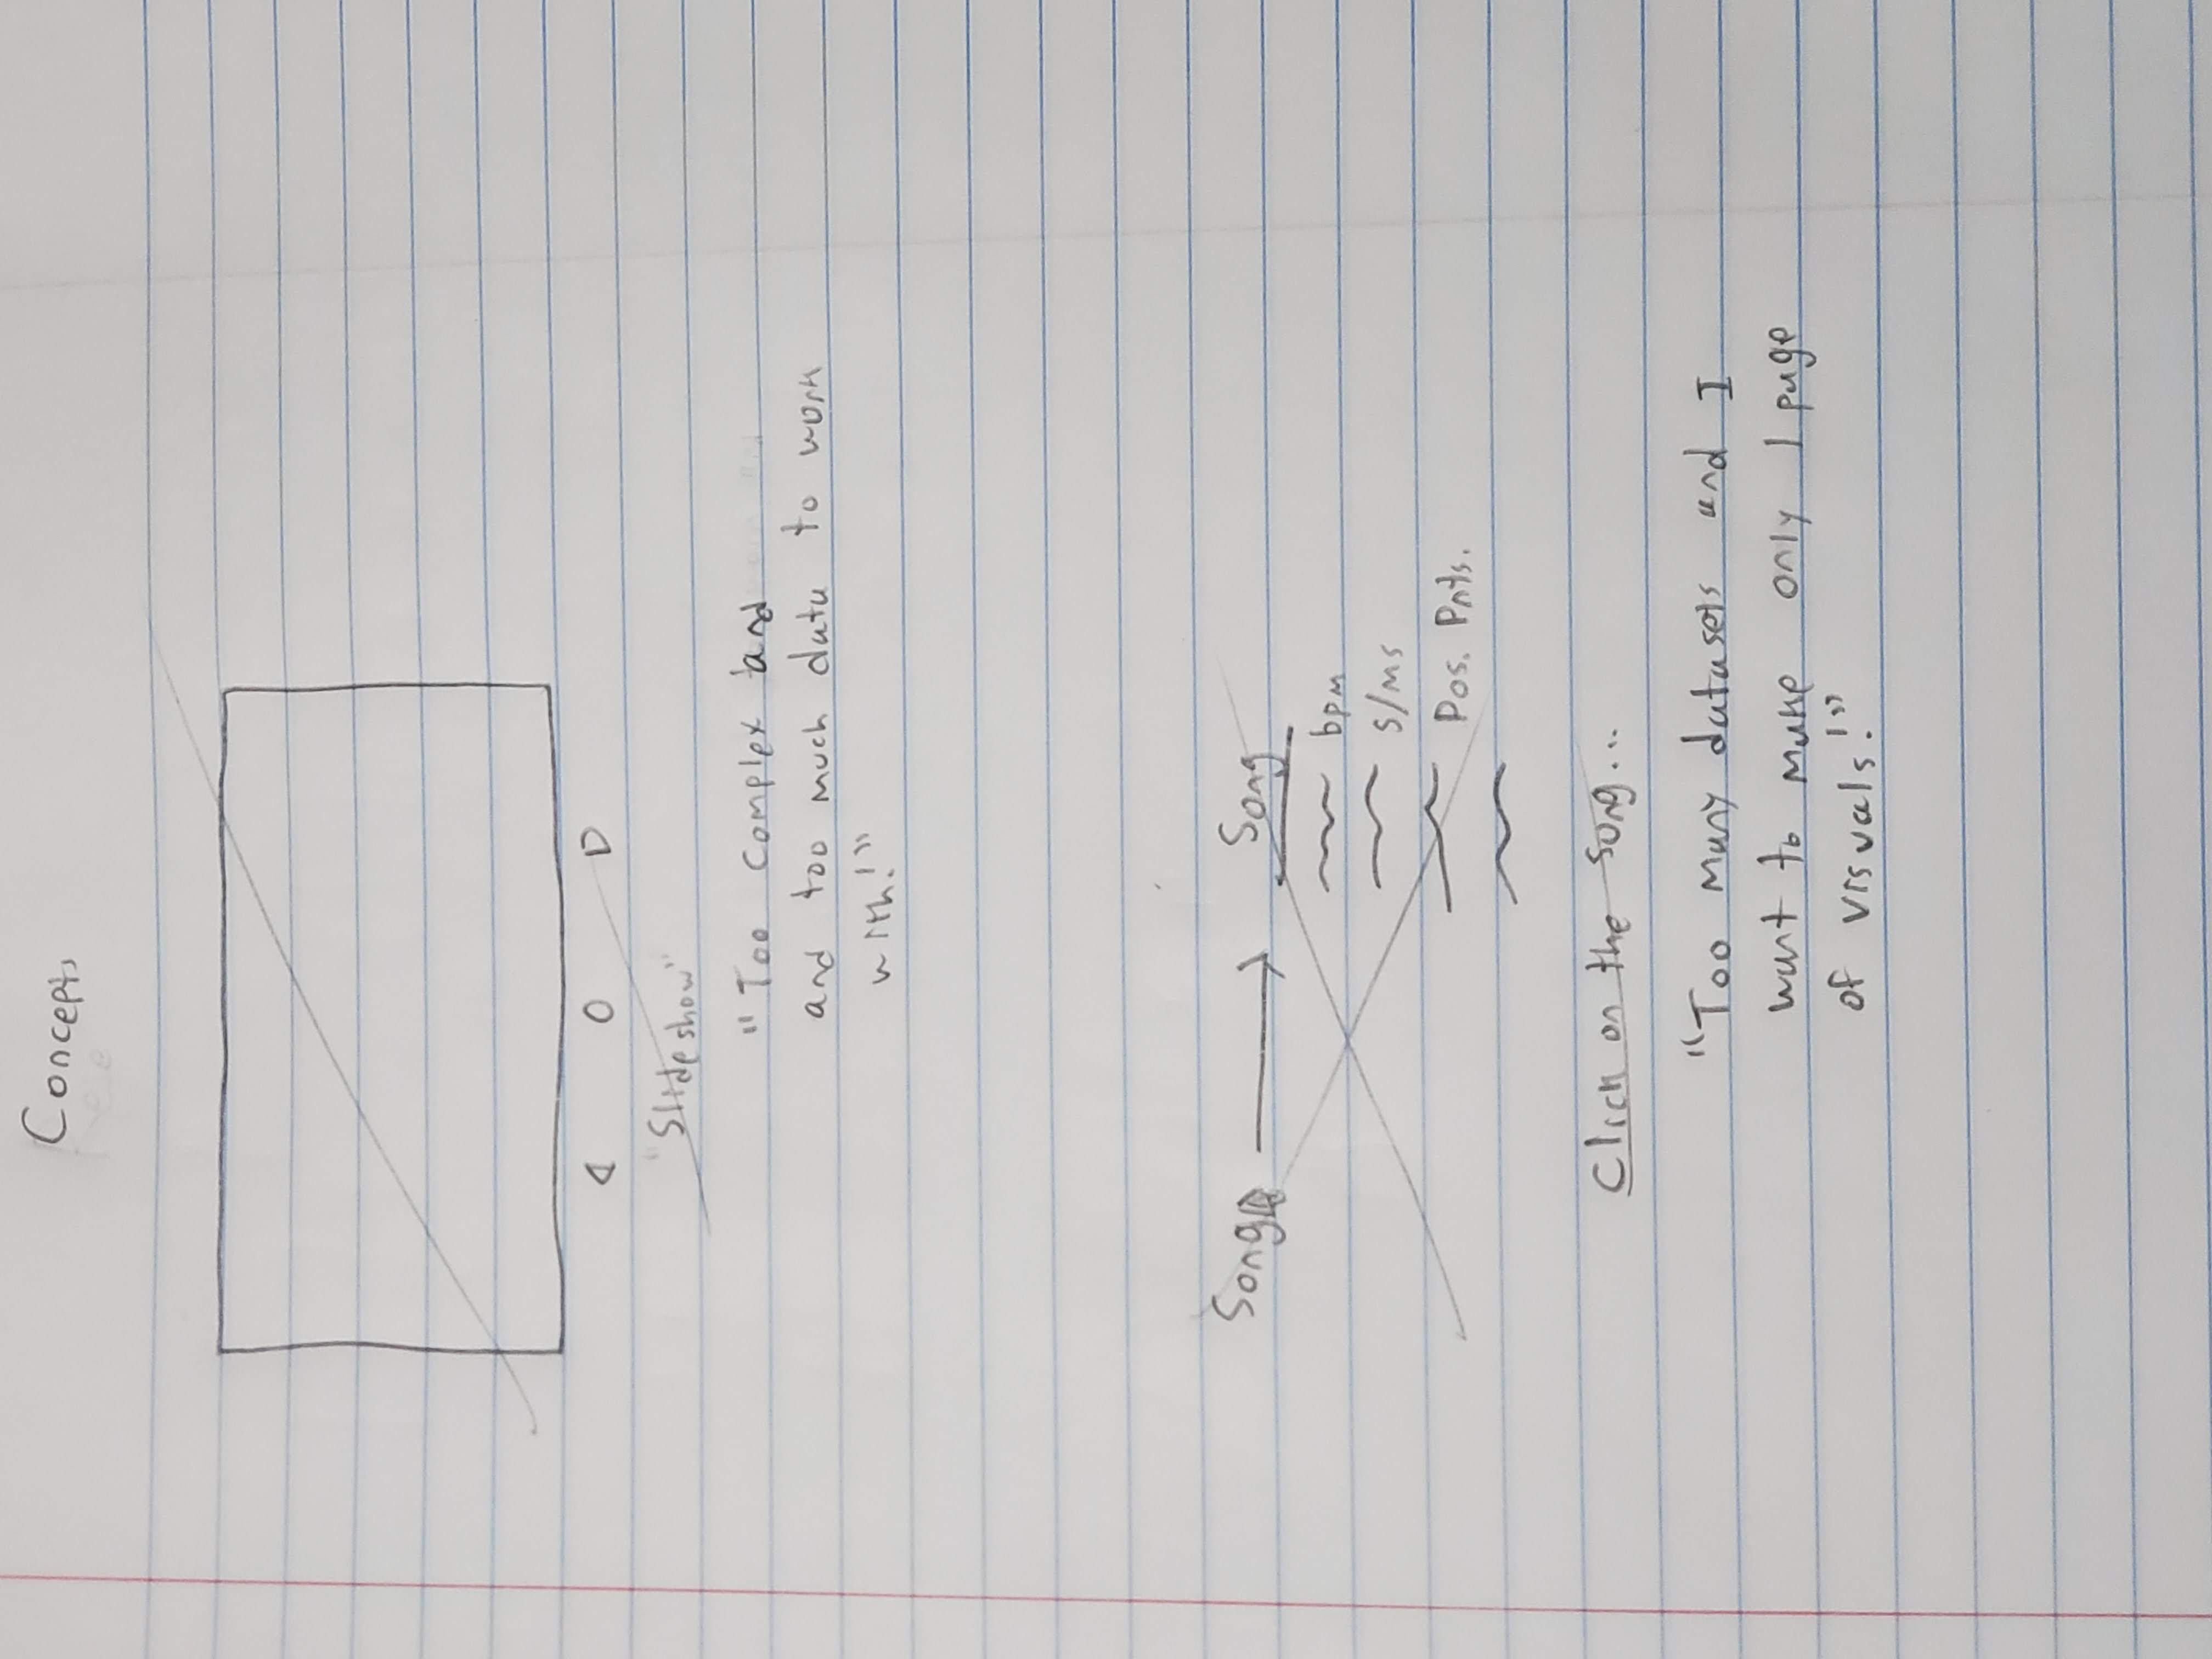 Concepts
"Slideshow"
"Too complex and
and too much data to work
with!"
Song
Song
bpm
s/ms
Pos. Pnts.
Click on the song...
"Too many datasets and I
want to make only 1 page
of visuals!"